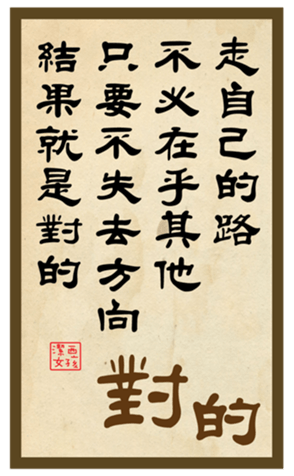 走自己的路
不必在乎其他
只要不失去方向
結果就是對的
對的